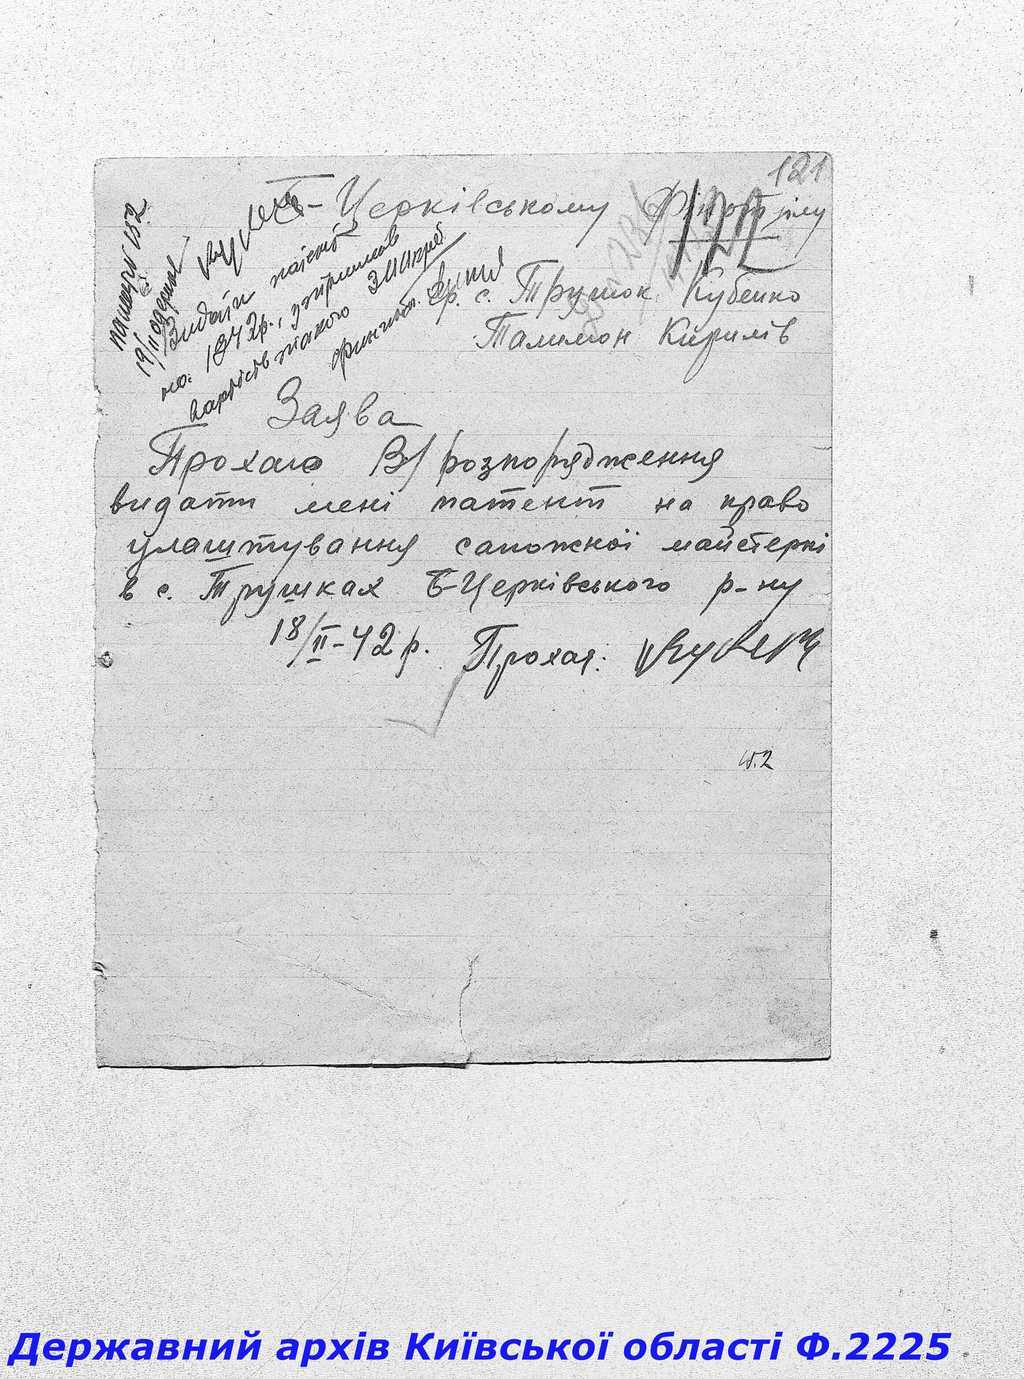 121
Б-Церківському Фінвідділу
122
гр. с. Трушок Кубенко
Талимон Кирилів
патент 152
19/II одержав
Видати патент
на 1942 р., утримав
вартість такого
Заява
Прохаю В/розпорядження
видати мені патент на право
улаштування сапожної майстеркі
в с. Трушках Б-Церківського р-ну
18/II-42 р. Прохач:
Державний архів Київської області Ф.2225